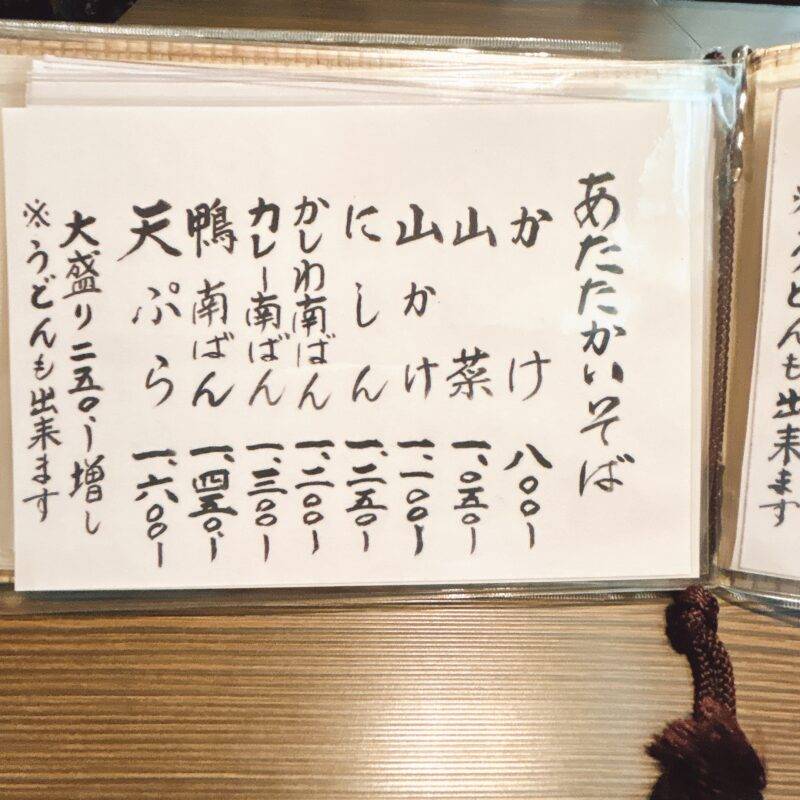 あたたかいそば
かけ 八〇〇ー
山菜 一、〇五〇ー
山かけ 一、一〇〇ー
にしん 一、二五〇ー
かしわ南ばん 一、二〇〇ー
カレー南ばん 一、三〇〇ー
鴨南ばん 一、四五〇ー
天ぷら 一、六〇〇ー
大盛り二五〇ー増し
※うどんも出来ます
※うどんも出来ます